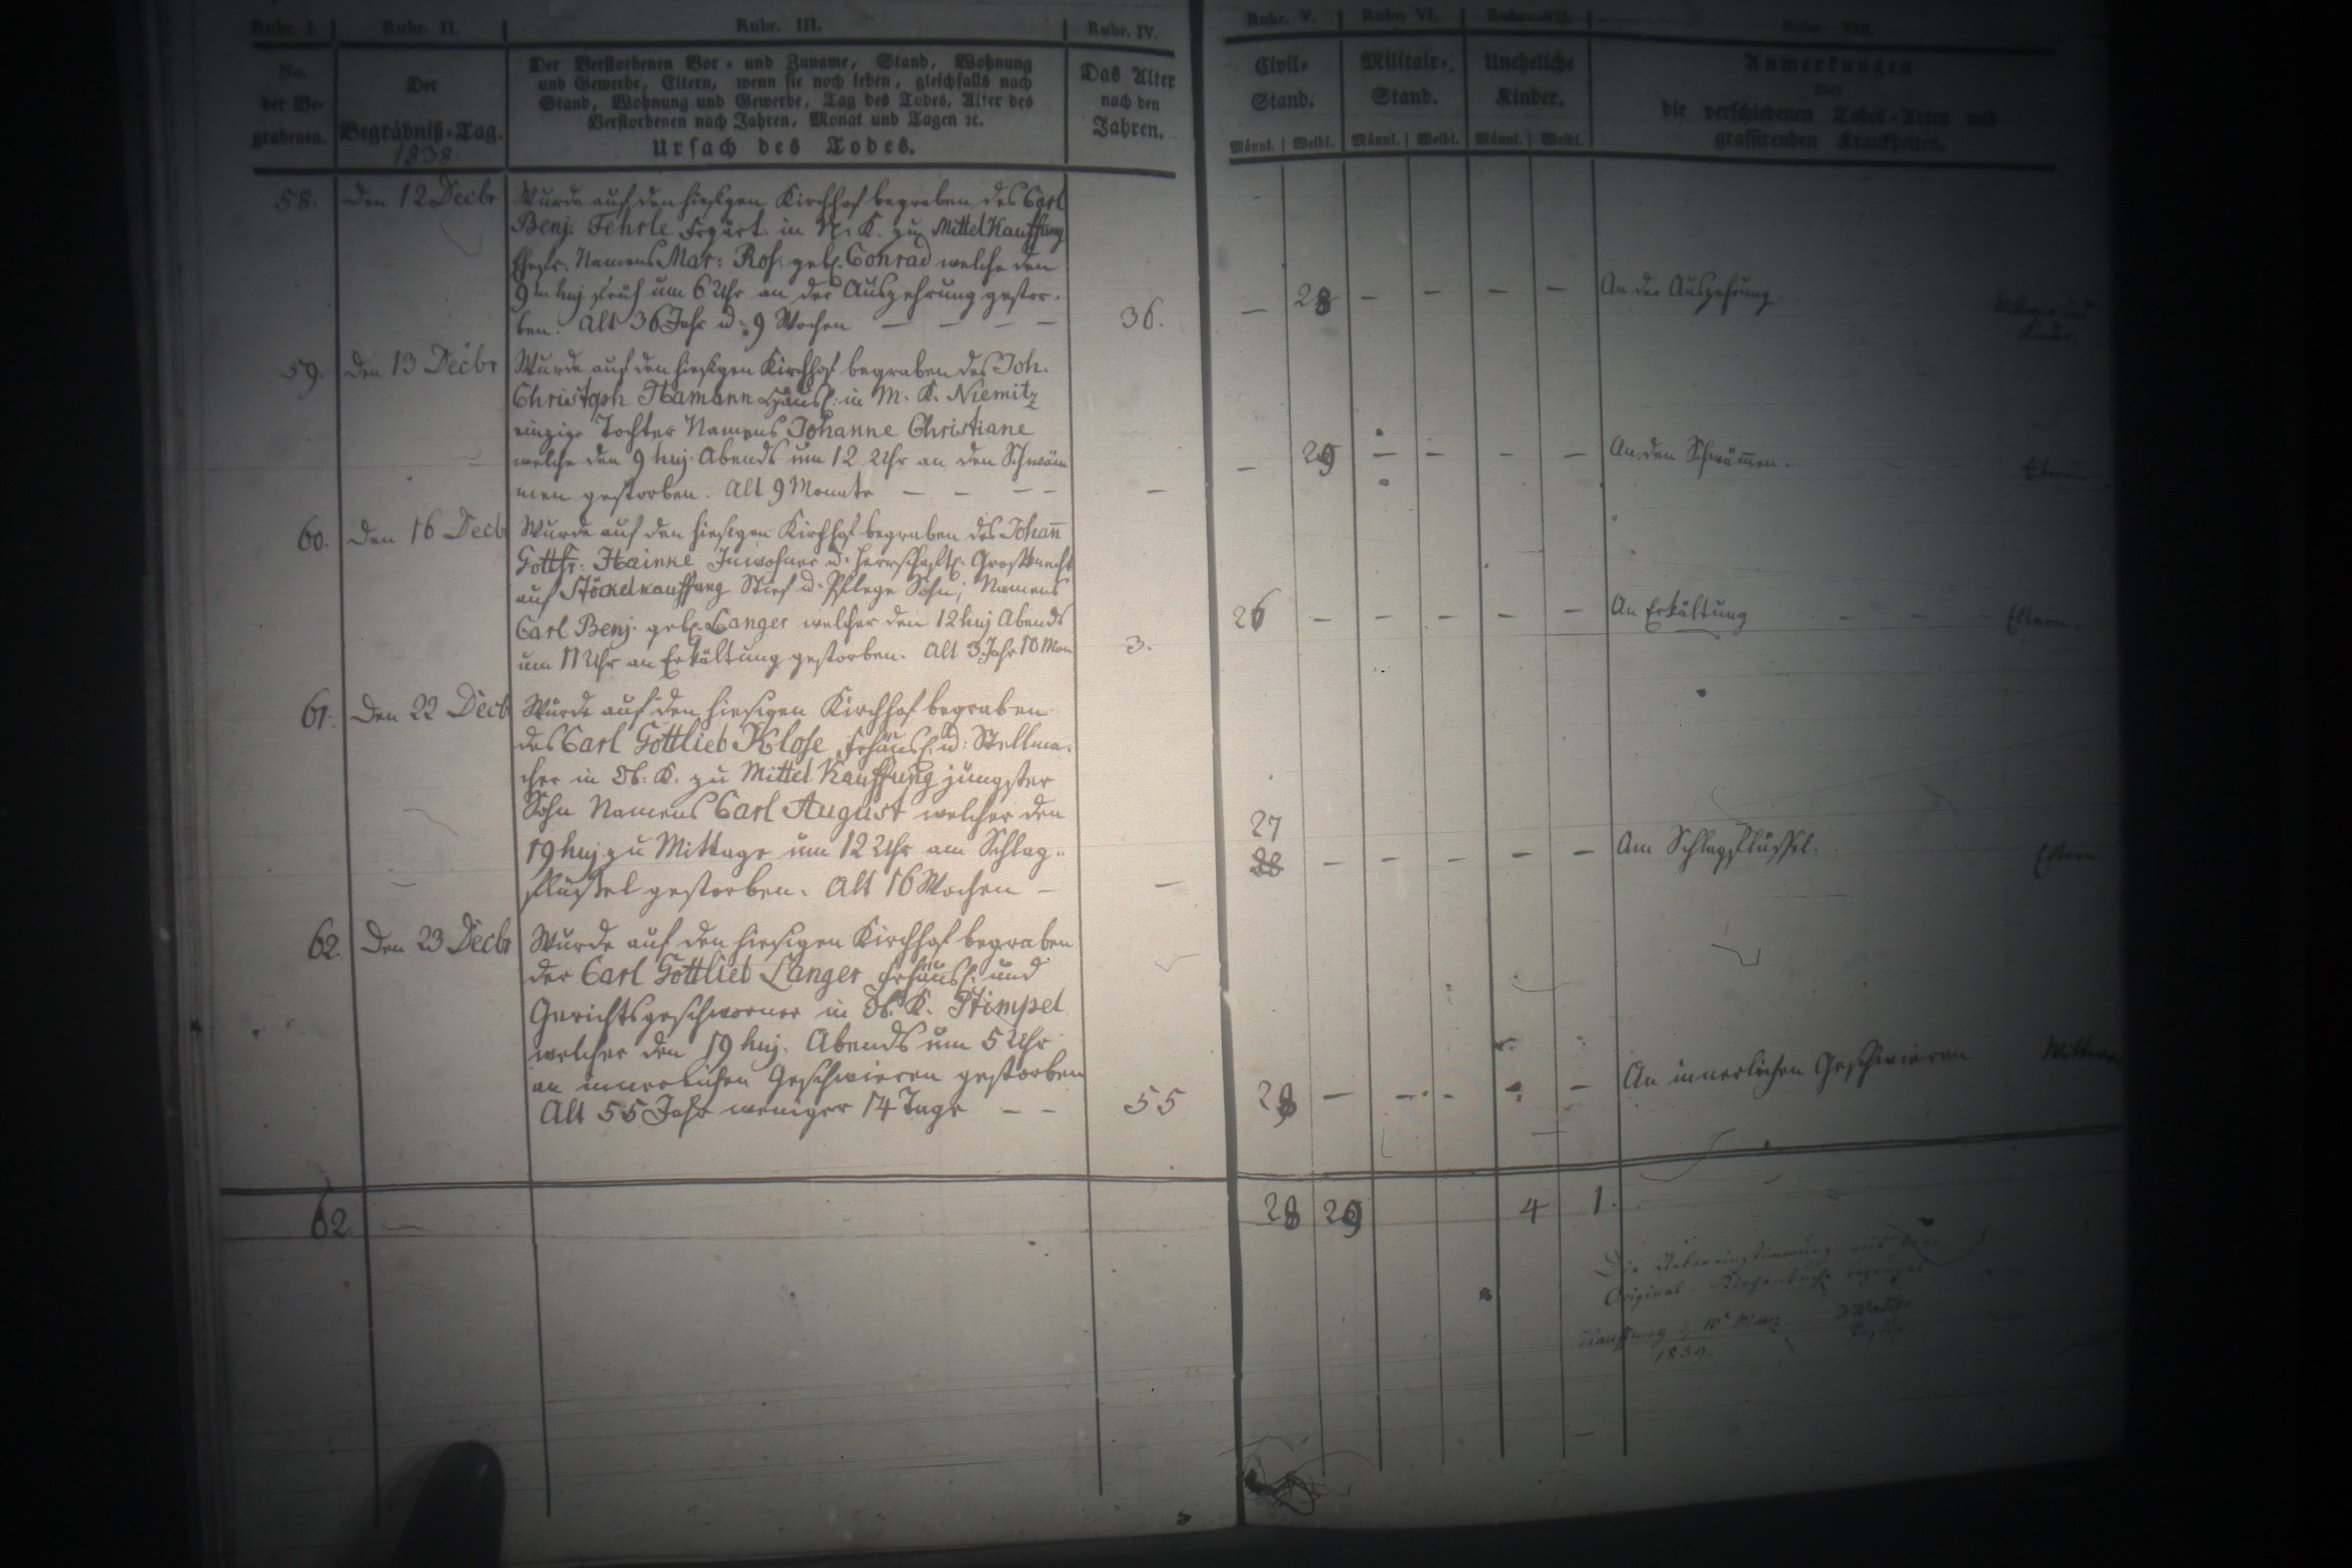 Rubr. I. Rubr. II. Rubr. III. Rubr. IV. Rubr. V. Rubr. VI. Rubr. VII. Rubr. VIII.
No. der Be- grabenen.
Der Begräbniß-Tag.
1838
Der Verstorbenen Vor- und Zuname, Stand, Wohnung
und Gewerbe, Eltern, wenn sie noch leben, gleichfalls nach
Stand, Wohnung und Gewerbe, Tag des Todes, Alter des
Verstorbenen nach Jahren, Monat und Tagen ꝛc.
Ursach des Todes.
Das Alter
nach den
Jahren.
Civil-
Stand.
Männl. Weibl.
Militair-
Stand.
Männl. Weibl.
Uneheliche
Kinder.
Männl. Weibl.
Anmerkungen
über
die verschiedenen Todes-Arten und
grassirenden Krankheiten.
58. Den 12 Decbr
Wurde auf den hiesigen Kirchhof begraben des Carl
Benj. Fehrle Frgärt. in N. K. zu Mittel Kauffung
Ehefr. Namens Mar: Ros: geb. Conrad welche den
9ten huj früh um 6 Uhr an der Auszehrung gestor-
ben. Alt 36 Jahr u: 9 Wochen — — — —
36. — 28 — — — — An der Auszehrung.
59. Den 13 Decbr
Wurde auf den hiesigen Kirchhof begraben des Joh.
Christoph Hamann Häusl: in M. K. Niemitz
einzige Tochter Namens Johanne Christiane
welche den 9 huj. Abends um 12 Uhr an den Schwäm
men gestorben. Alt 9 Monate — — — —
— — 29 — — — — An den Schwäm̄en. Eltern
60. Den 16 Decbr
Wurde auf den hiesigen Kirchhof begraben des Johan̄
Gottfr: Hainke Inwohner u. herrschaftl. Großknecht
auf Stöckelkauffung Stief u. Pflege Sohn, Namens
Carl Benj. geb. Langer welcher den 12 huj Abends
um 11 Uhr an Erkältung gestorben. Alt 3 Jahr 10 Mon
3. 26 — — — — — An Erkältung — — — Eltern
61. Den 22 Decb
Wurde auf den hiesigen Kirchhof begraben
des Carl Gottlieb Klose Frhäusl. u: Stellma-
cher in Ob: K. zu Mittel Kauffung jüngster
Sohn Namens Carl August welcher den
19 huj. zu Mittage um 12 Uhr am Schlag-
flüssel gestorben. Alt 16 Wochen —
— 27 28 — — — — — Am Schlagflüssel. Eltern
62. Den 23 Decbr
Wurde auf den hiesigen Kirchhof begraben
der Carl Gottlieb Langer Frhäusl. und
Gerichtsgeschworner in Ob. K. Stimpel
welcher den 19 huj. Abends um 5 Uhr
an innerlichen Geschwieren gestorben
Alt 55 Jahr weniger 14 Tage — —
55 28 — — — — — An innerlichen Geschwieren Wittwe
62. 28 29 4 1.
Die Uebereinstimmung mit dem
Original-Kirchenbuche
Kauffung 10 März
1839.